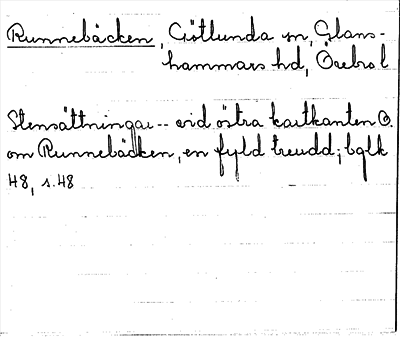 Runnebäcken, Götlunda sn, Glans-
hammars hd, Örebro l
Stensättningar -- vid östra kartkanten O.
om Runnebäcken, en fylld treudd; bglk
48, s. 48